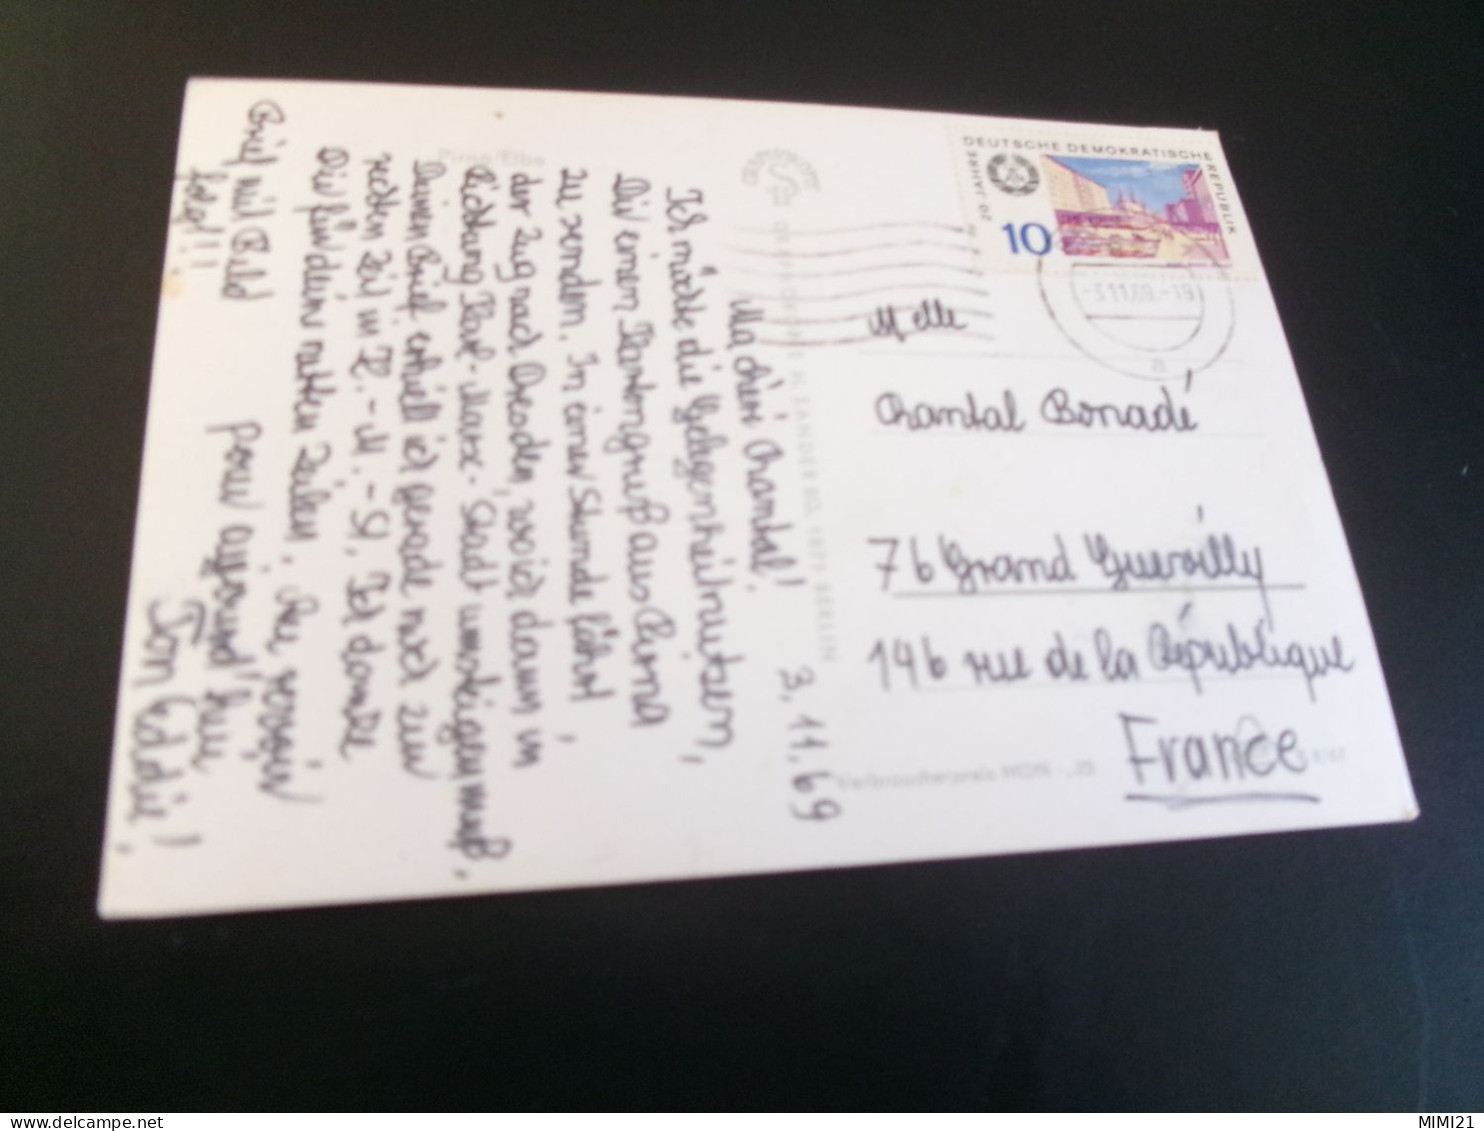 Pirna/Elbe
3.11.69
Ma chère Chantal!
Ich möchte die Gelegenheit nutzen,
Dir einen Kartengruß aus Pirna
zu senden. In einer Stunde fährt
der Zug nach Dresden, wo ich dann in
Richtung Karl-Marx-Stadt umsteigen muß.
Deinen Brief erhielt ich gerade noch zur
rechten Zeit in K.-M.-St. Ich danke
Dir für deine netten Zeilen.
Brief mit Bild
folgt!!
pour aujourd'hui
Ton Eddie!
H. SANDER KG, 1071 BERLIN
Verbraucherpreis MDN -,20
DEUTSCHE DEMOKRATISCHE REPUBLIK
20 JAHRE
10
-3.11.69.-19
a
Melle
Chantal Bonadé
76 Grand Quevilly
146 rue de la République
France
MIMI21